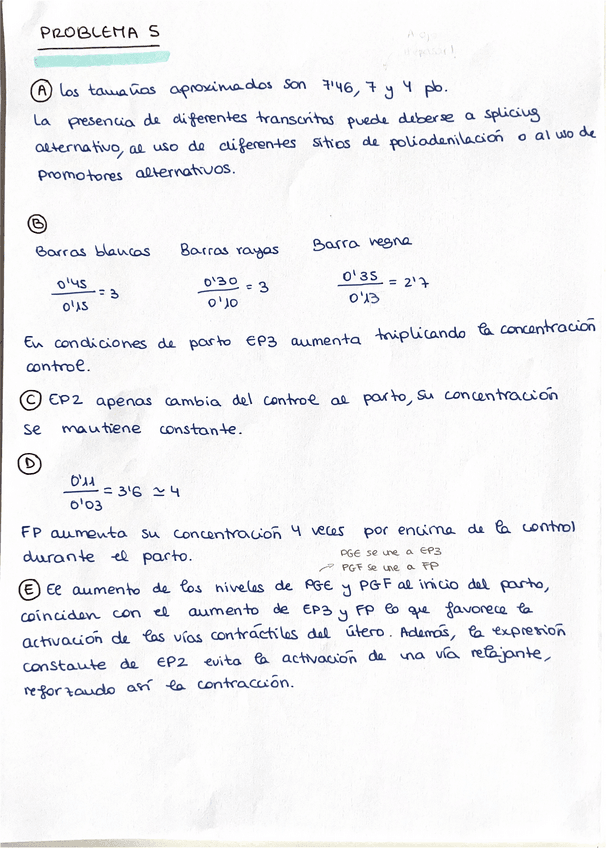 PROBLEMA 5
Ⓐ Los tamaños aproximados son 7'46, 7 y 4 pb.
La presencia de diferentes transcritos puede deberse a splicing
alternativo, al uso de diferentes sitios de poliadenilación o al uso de
promotores alternativos.
Ⓑ
Barras blancas Barras rayas Barra negra
0'45/0'15 = 3 0'30/0'10 = 3 0'35/0'13 = 2'7
En condiciones de parto EP3 aumenta triplicando la concentración
control.
Ⓒ EP2 apenas cambia del control al parto, su concentración
se mantiene constante.
Ⓓ
0'11/0'03 = 3'6 ≃ 4
FP aumenta su concentración 4 veces por encima de la control
durante el parto.
PGE se une a EP3
PGF se une a FP
Ⓔ El aumento de los niveles de PGE y PGF al inicio del parto,
coinciden con el aumento de EP3 y FP lo que favorece la
activación de las vías contráctiles del útero. Además, la expresión
constante de EP2 evita la activación de una vía relajante,
reforzando así la contracción.